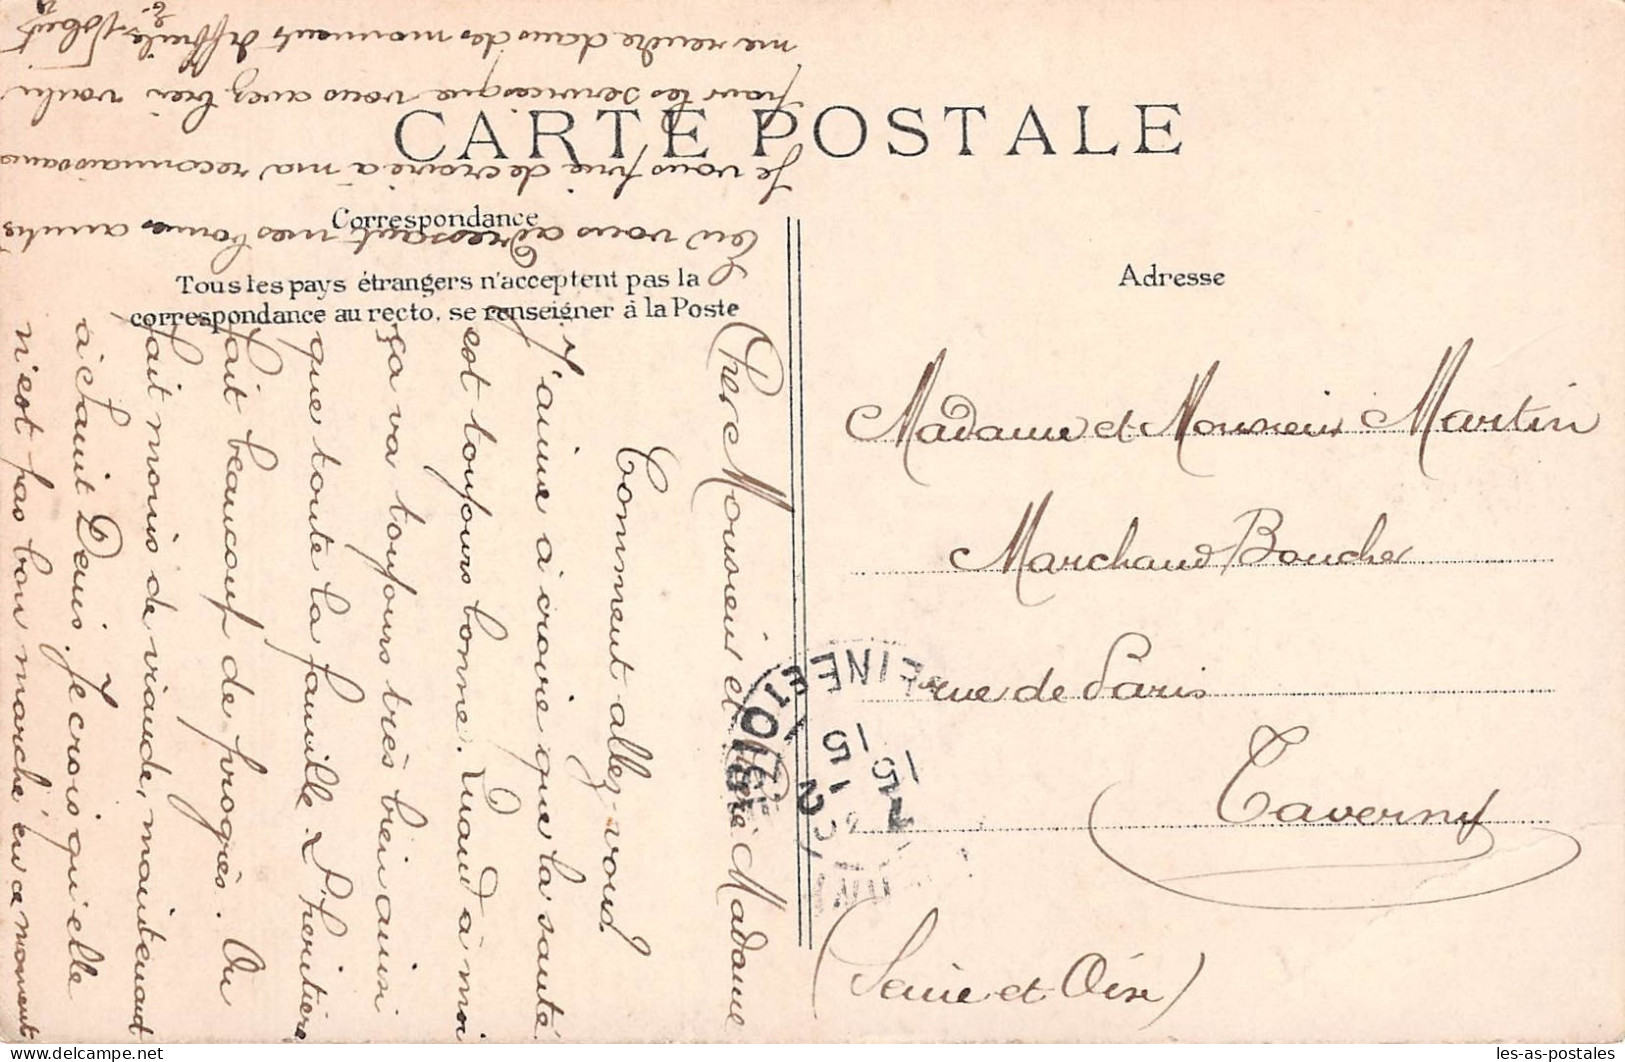 CARTE POSTALE
Correspondance
Tous les pays étrangers n'acceptent pas la
correspondance au recto, se renseigner à la Poste
Adresse
Cher Monsieur et Madame
Comment allez-vous
J'aime à croire que la santé
est toujours bonne. Quand à moi
ça va toujours très bien ainsi
que toute la famille. L'héritière
fait beaucoup de progrès. On
fait moins de viande, maintenant
à Saint Denis, je crois qu'elle
n'est pas bon marché en ce moment
En vous adressant mes bonnes amitiés
Je vous prie de croire à ma reconnaissance
pour les services que vous avez bien voulu
me rendre dans des moments difficiles
Madame et Monsieur Martin
Marchand Boucher
rue de Paris
Taverny
(Seine et Oise)
les-as-postales